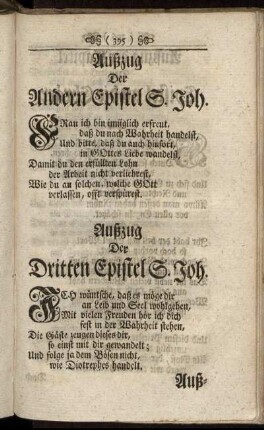 ( 395 )
Außzug
Der
Andern Epistel S. Joh.
FRau ich bin inniglich erfreut,
daß du nach Wahrheit handelst,
Und bitte, daß du auch hinfort,
in GOttes Liebe wandelst,
Damit du den erfüllten Lohn
der Arbeit nicht verliehrest,
Wie du an solchen, welche GOtt
verlassen, offt verspürest.
Außzug
Der
Dritten Epistel S. Joh.
ICH wüntsche, daß es möge dir
an Leib und Seel wohlgehen,
Mit vielen Freuden hör ich dich
fest in der Wahrheit stehen,
Die Gäste zeugen dieses dir,
so einst mit dir gewandelt;
Und folge ja dem Bösen nicht,
wie Diotrephes handelt.
Auß-